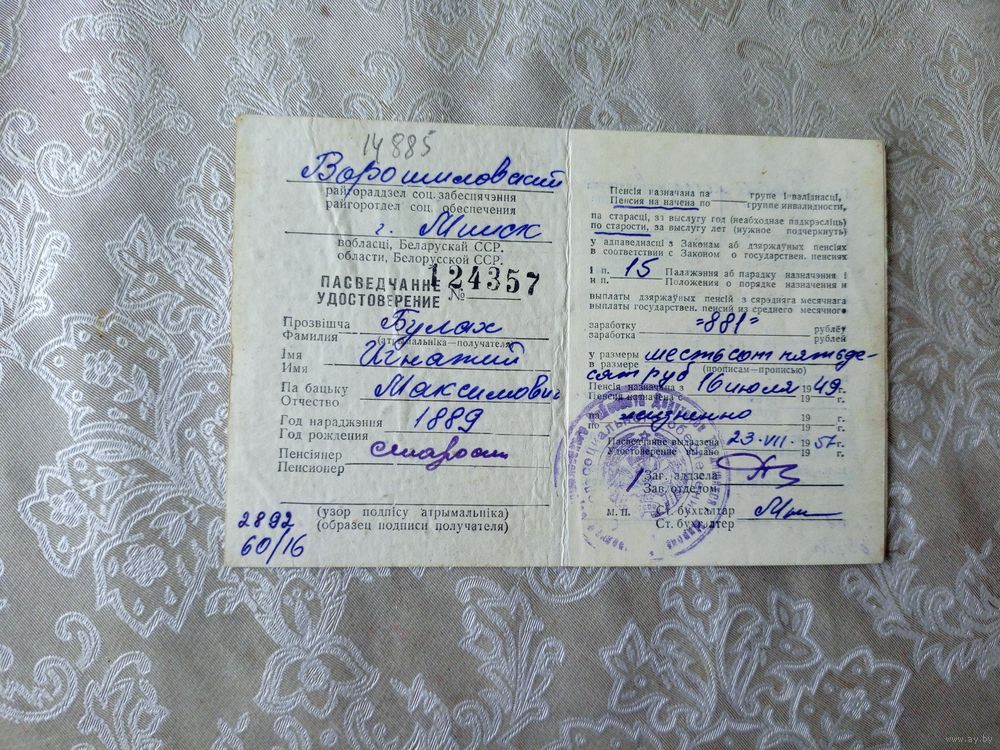 14885
Ворошиловский
райгораддзел соц. забеспячэння
райгоротдел соц. обеспечения
г. Минск
вобласці, Беларускай ССР.
области, Белорусской ССР.
ПАСВЕДЧАННЕ
УДОСТОВЕРЕНИЕ № 124357
Прозвішча
Фамилия Булах
(атрымальніка—получателя)
Імя
Имя Игнатий
Па бацьку
Отчество Максимович
Год нараджэння
Год рождения 1889
Пенсіянер
Пенсионер старости
(узор подпісу атрымальніка)
(образец подписи получателя)
2892
60/16
Пенсія назначана па группе інваліднасці,
Пенсия назначена по группе инвалидности,
па старасці, за выслугу год (необходнае падкрэсліць)
по старости, за выслугу лет (нужное подчеркнуть)
у адпаведнасці з Законам аб дзяржаўных пенсіях
в соответствии с Законом о государствен. пенсиях
і п. 15 Палажэння аб парадку назначэння і
и п. Положения о порядке назначения и
выплаты дзяржаўных пенсій з сярэдняга месячнага
выплаты государствен. пенсий из среднего месячного
заработку =881= рублёў
заработка рублей
у размеры шестьсот пятьде-
в размере (прописам—прописью)
сят руб
Пенсія назначана з 16 июля 1949 г.
Пенсия назначена с 19 г.
па пожизненно 19 г.
по 19 г.
Пасведчанне выдадзена 23.VII. 1957 г.
Удостоверение выдано 19 г.
Заг. аддзела
Зав. отделом
м. п. Ст. бухгалтар
Ст. бухгалтер
www.ay.by